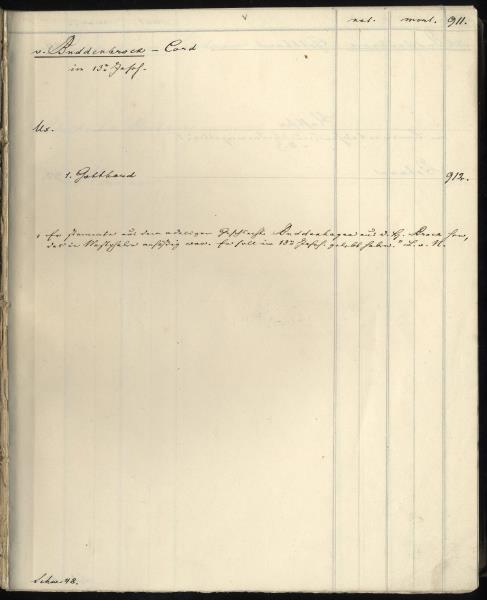 nat. mort. 911.
v. Buddenbrock – Cord
in 13ᵗ Jahrh.
Ux.
1. Gotthard 912.
„ Er stammte aus dem adeligen Geschlecht Buddenhagen aus d. H. Brock her,
der in Westfalen ansässig war. Er soll im 13ᵗ Jahrh. gelebt haben." L. v. N.
48.